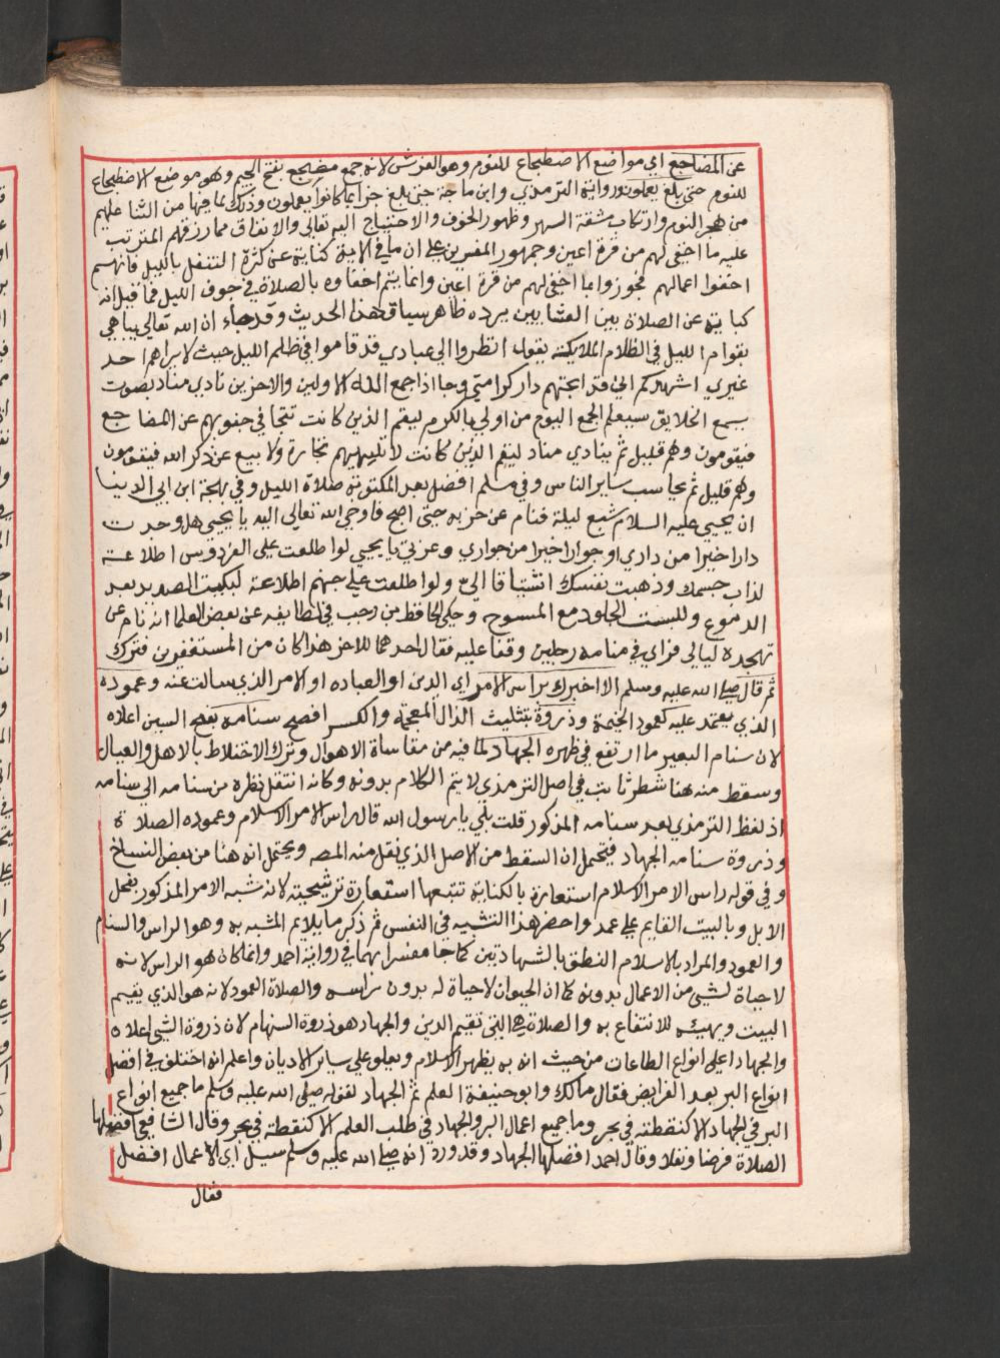 عن المضاجع اي مواضع الاضطجاع للنوم وهو الفرش لانه جمع مضجع بفتح الجيم وهو موضع الاضطجاع
للنوم حتى بلغ يعملون ورواية الترمذي وابن ماجة حتى بلغ جزا بما كانوا يعملون وذلك لما فيها من الثنا عليهم
من هجر النوم وارتكاب مشقة السهر وظهور الخوف والاحتياج اليه تعالى والانفاق مما رزقهم المترتب
عليه ما اخفي لهم من قرة اعين وجمهور المفسرين على ان ما في الاية كناية عن كثرة التنفل بالليل فانهم
اخفوا اعمالهم فجوزوا بما اخفي لهم من قرة اعين وانما يتم اخفاوه بالصلاة في جوف الليل فما قيل انه
كناية عن الصلاة بين العشايين يرده ظاهر سياق هذا الحديث وقد جاء ان الله تعالى يباهي
بقوام الليل في الظلام الملايكة يقول انظروا الى عبادي قد قاموا في ظلم الليل حيث لا يراهم احد
غيري اشهدكم اني قد ابحتهم دار كرامتي وجا اذا جمع الله الاولين والاخرين نادي مناد بصوت
يسمع الخلايق سيعلم الجمع اليوم من اولى بالكرم ليقم الذين كانت تتجافي جنوبهم عن المضاجع
فيقومون وهم قليل ثم ينادي مناد ليقم الذين كانت لا تلهيهم تجارة ولا بيع عن ذكر الله فيقومون
وهم قليل ثم يحاسب ساير الناس وفي مسلم افضل بعد المكتوبة صلاة الليل وفي بهجة ابن ابي الدنيا
ان يحيي عليه السلام شبع ليلة فنام عن حزبه حتى اصبح فاوحي الله تعالى اليه يا يحيى هل وجدت
دارا خيرا من داري او جوارا خيرا من جواري وعزتي يا يحيى لو اطلعت على الفردوس اطلاعة
لذاب جسمك وذهبت نفسك اشتياقا الي ولو اطلعت على جهنم اطلاعة لبكيت الصديد بعد
الدموع وللبست الجلود مع المسوح وحكى الحافظ بن رجب في لطايفه عن بعض العلما انه نام عن
تهجده ليالي فراي في منامه رجلين وقفا عليه فقال احدهما للاخر هذا كان من المستغفرين فترك
ثم قال صلى الله عليه وسلم الا اخبرك براس الامر اي الدين او العباده او الامر الذي سالت عنه وعموده
الذي يعتمد عليه كعمود الخيمة وذروة بتثليث الذال المعجمة والكسر افصح سنامه بفتح السين اعلاه
لان سنام البعير ما ارتفع في ظهره الجهاد لما فيه من مقاساة الاهوال وترك الاختلاط بالاهل والعيال
وسقط منه هنا شطر ثابت في اصل الترمذي لا يتم الكلام بدونه وكانه انتقل نظره من سنامه الى سنامه
اذ لفظ الترمذي بعد سنامه المذكور قلت بلي يا رسول الله قال راس الامر الاسلام وعموده الصلاة
وذروة سنامه الجهاد فيحتمل ان السقط من الاصل الذي نقل منه المصـ ويحتمل انه هنا من بعض النساخ
وفي قوله راس الامر الاسلام استعارة بالكناية تتبعها استعارة ترشيحية لانه شبه الامر المذكور بفحل
الابل وبالبيت القايم على عمد واضمر هذا التشبيه في النفس ثم ذكر ما يلايم المشبه به وهو الراس والسنام
والعمود والمراد بالاسلام النطق بالشهادتين كما جا مفسرا بهما في رواية احمد وانما كان هو الراس لانه
لا حياة لشي من الاعمال بدونه كما ان الحيوان لا حياة له بدون راسه والصلاة العمود لانه هو الذي يقيم
البيت ويهيئه للانتفاع به والصلاة هي التي تقيم الدين والجهاد هو ذروة السنام لان ذروة الشي اعلاه
والجهاد اعلى انواع الطاعات من حيث انه به يظهر الاسلام ويعلو على سائر الاديان واعلم انه اختلف في افضل
انواع البر بعد الفرايض فقال مالك وابو حنيفة العلم ثم الجهاد لقوله صلى الله عليه وسلم ما جميع انواع
البر في الجهاد الا كنقطة في بحر وما جميع اعمال البر والجهاد في طلب العلم الا كنقطة في بحر وقال الشافعي افضلها
الصلاة فرضا ونفلا وقال احمد افضلها الجهاد وقد ورد انه صلى الله عليه وسلم سيل اي الاعمال افضل
فقال